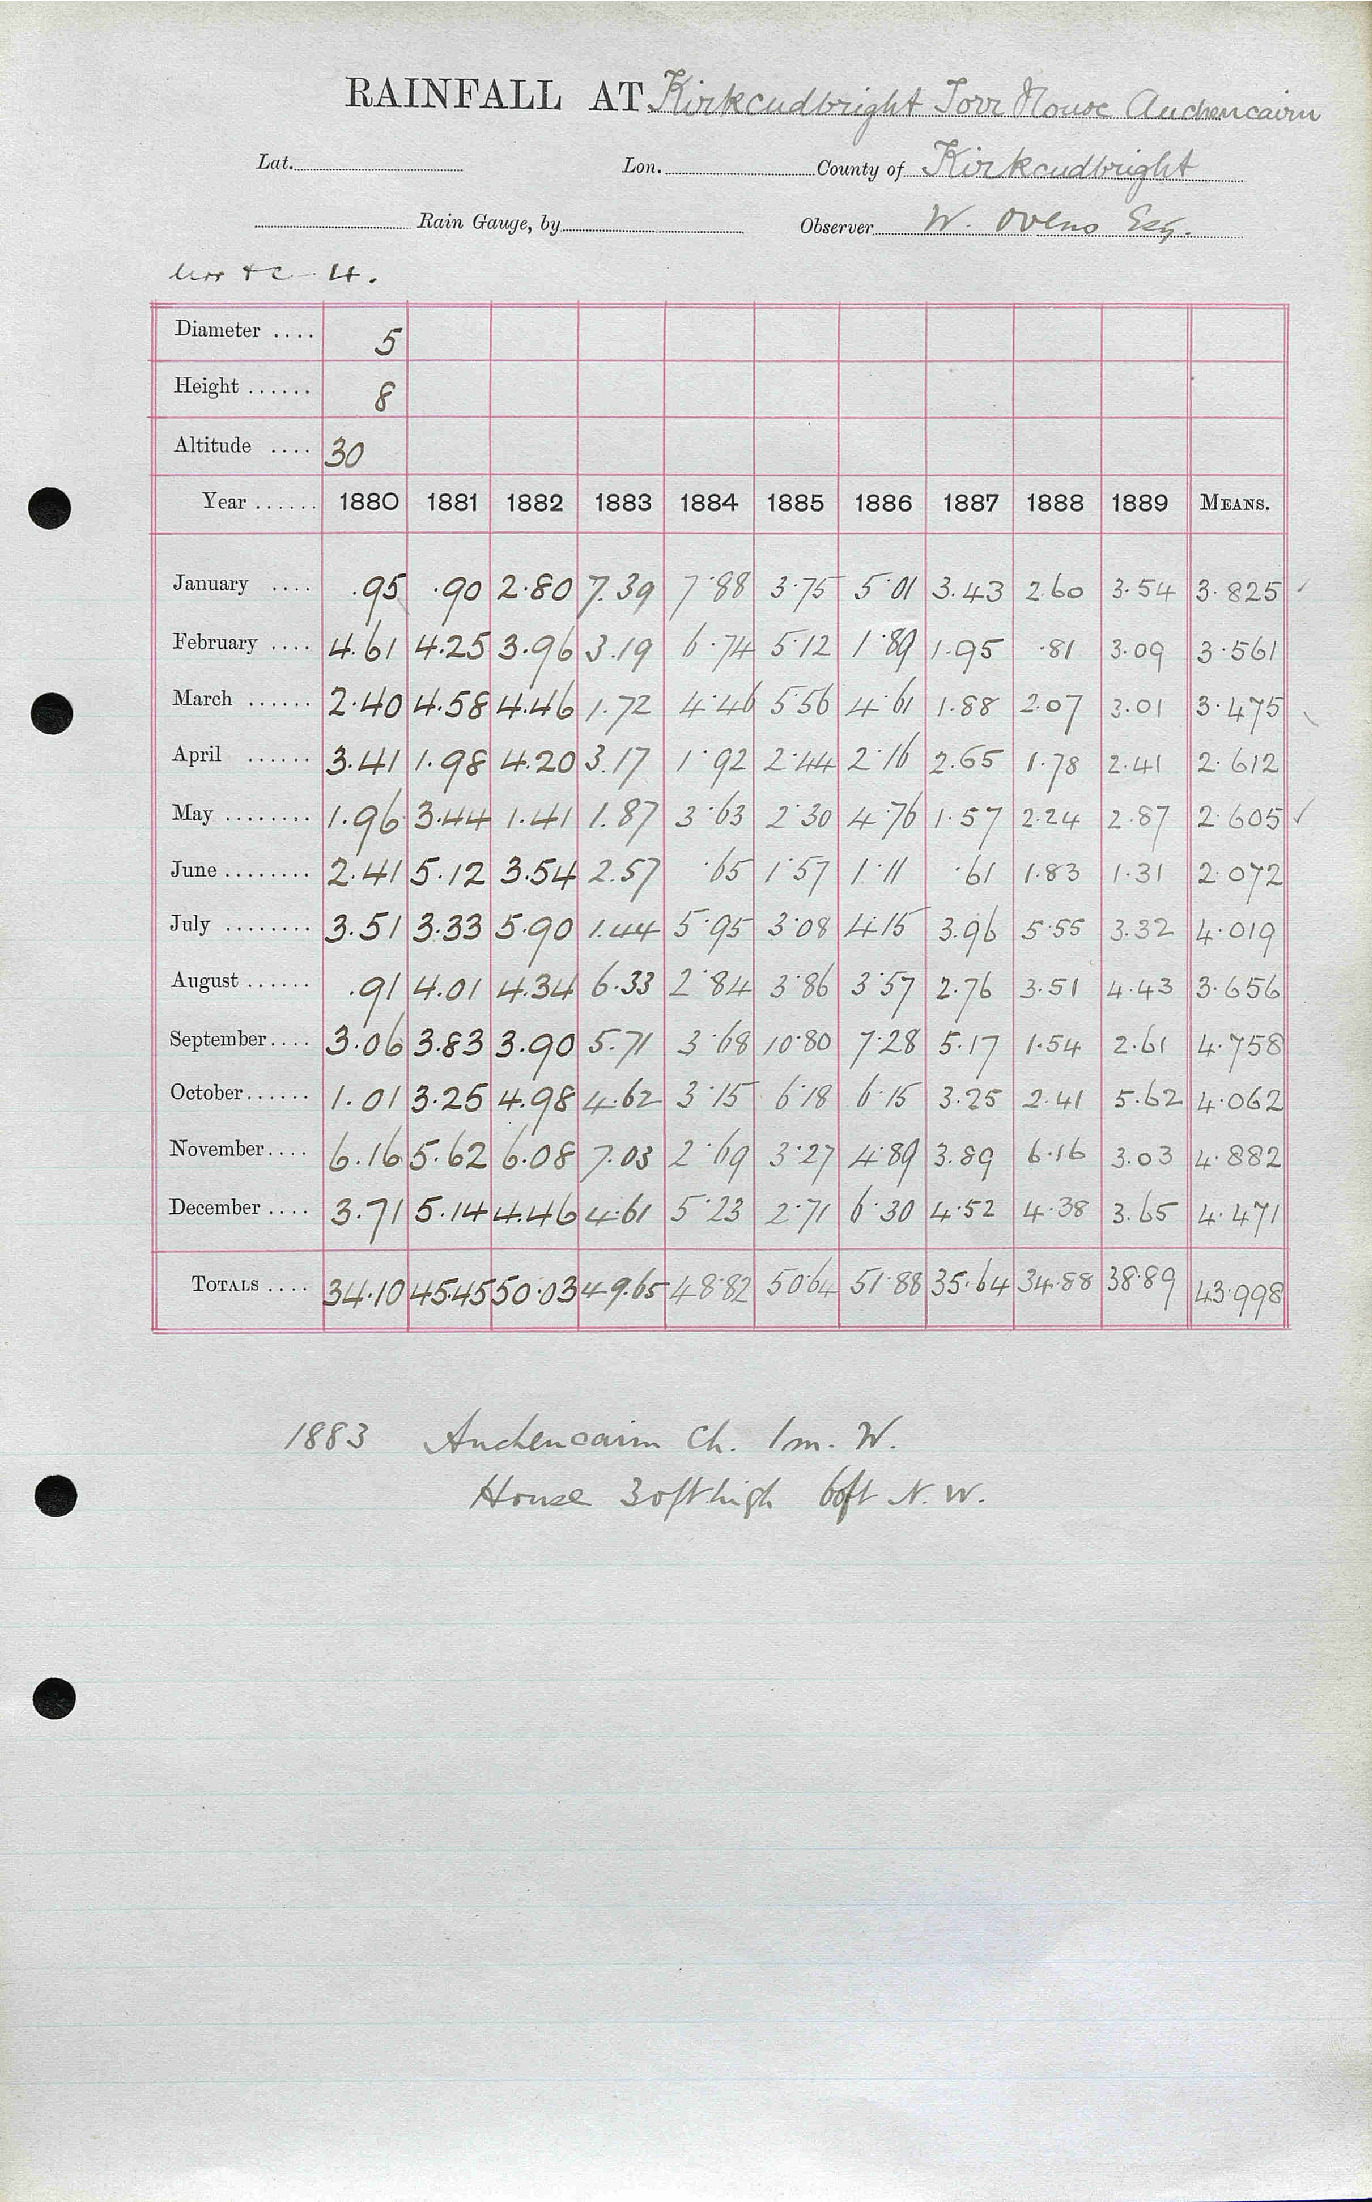 RAINFALL AT Kirkcudbright Torr House Auchencairn
Lat. Lon. County of Kirkcudbright
Rain Gauge, by Observer W. Ovens Esq.
4.
Diameter .... 5
Height ...... 8
Altitude .... 30
Year ...... 1880 1881 1882 1883 1884 1885 1886 1887 1888 1889 MEANS.
January .... .95 .90 2.80 7.39 7.88 3.75 5.01 3.43 2.60 3.54 3.825 ✓
February .... 4.61 4.25 3.96 3.19 6.74 5.12 1.89 1.95 .81 3.09 3.561
March ...... 2.40 4.58 4.46 1.72 4.46 5.56 4.61 1.88 2.07 3.01 3.475
April ...... 3.41 1.98 4.20 3.17 1.92 2.44 2.16 2.65 1.78 2.41 2.612
May ........ 1.96 3.44 1.41 1.87 3.63 2.30 4.76 1.57 2.24 2.87 2.605 ✓
June ........ 2.41 5.12 3.54 2.57 .65 1.57 1.11 .61 1.83 1.31 2.072
July ........ 3.51 3.33 5.90 1.44 5.95 3.08 4.15 3.96 5.55 3.32 4.019
August ...... .91 4.01 4.34 6.33 2.84 3.86 3.57 2.76 3.51 4.43 3.656
September.... 3.06 3.83 3.90 5.71 3.68 10.80 7.28 5.17 1.54 2.61 4.758
October...... 1.01 3.25 4.98 4.62 3.15 6.18 6.15 3.25 2.41 5.62 4.062
November.... 6.16 5.62 6.08 7.03 2.69 3.27 4.89 3.89 6.16 3.03 4.882
December .... 3.71 5.14 4.46 4.61 5.23 2.71 6.30 4.52 4.38 3.65 4.471
TOTALS .... 34.10 45.45 50.03 49.65 48.82 50.64 51.88 35.64 34.88 38.89 43.998
1883 Auchencairn Ch. 1m. W.
House 30ft high 60ft N.W.